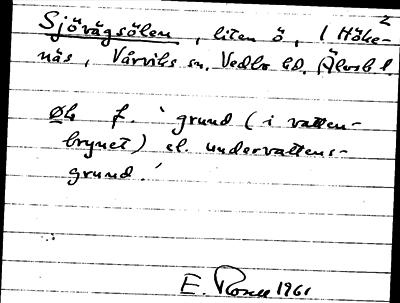 2
Sjövägsölen, liten ö, i Höke-
näs, Vårviks sn. Vedbo hd. Älvsb l.
Øh f. 'grund (i vatten-
brynet) el. undervattens-
grund.'
E. Rosell 1961